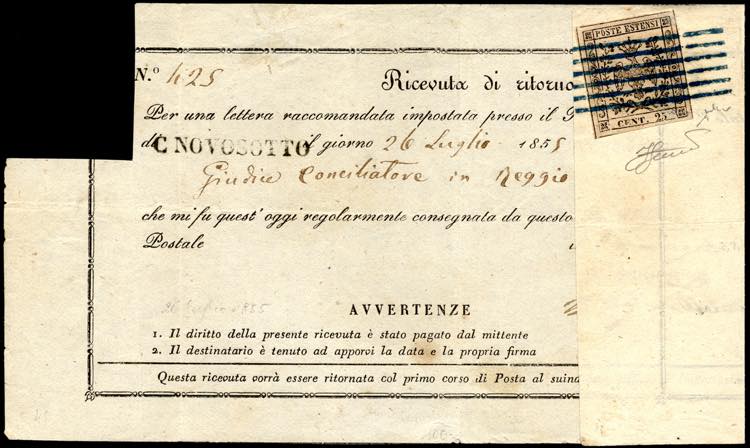 POSTE ESTENSI
CENT. 25.
N.º 425
Ricevuta di ritorno
Per una lettera raccomandata impostata presso il
d C NOVOSOTTO il giorno 26 Luglio 1855
Giudice Conciliatore in Reggio
che mi fu quest' oggi regolarmente consegnata da questo
Postale
26 Luglio 1855
AVVERTENZE
1. Il diritto della presente ricevuta è stato pagato dal mittente
2. Il destinatario è tenuto ad apporvi la data e la propria firma
Questa ricevuta vorrà essere ritornata col primo corso di Posta al suind